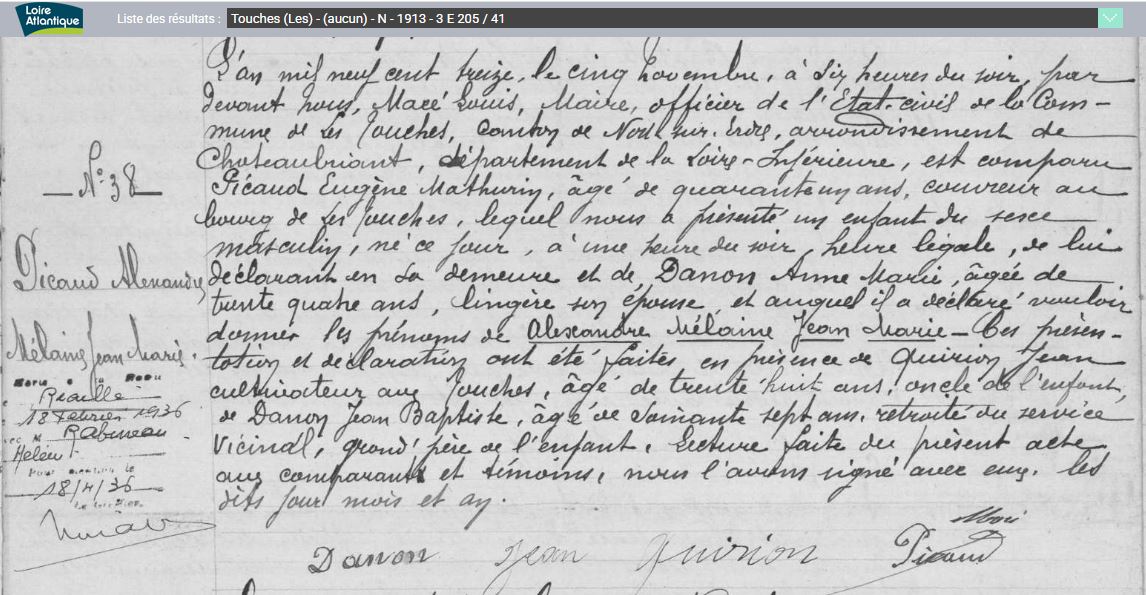 Loire
Atlantique
Liste des résultats :
Touches (Les) - (aucun) - N - 1913 - 3 E 205 / 41
L'an mil neuf cent treize, le cinq novembre, à six heures du soir, par
devant nous, Macé Louis, Maire, officier de l'Etat-civil de la Com-
mune de Les Touches, canton de Nort-sur-Erdre, arrondissement de
Chateaubriant, département de la Loire-Inférieure, est comparu
Picaud Eugène Mathurin, âgé de quarante un ans, couvreur au
bourg de Les Touches, lequel nous a présenté un enfant du sexe
masculin, né ce jour, à une heure du soir, heure légale, de lui
déclarant en sa demeure et de Danon Anne Marie, âgée de
trente quatre ans, lingère son épouse, et auquel il a déclaré vouloir
donner les prénoms de Alexandre Mélaine Jean Marie - Ces présen-
tation et déclaration ont été faites en présence de Quirion Jean
cultivateur aux Touches, âgé de trente huit ans, oncle de l'enfant,
de Danon Jean Baptiste, âgé de soixante sept ans, retraité du service
Vicinal, grand'père de l'enfant. Lecture faite du présent acte
aux comparant et témoins, nous l'avons signé avec eux. les
dits jour mois et an.
N° 38
Picaud Alexandre
Mélaine Jean Marie.
Marié à
Riaillé
18 février 1936
avec M Rabineau
Hélène
Pour mention le
18/4/36
Danon Jean Quirion Picaud